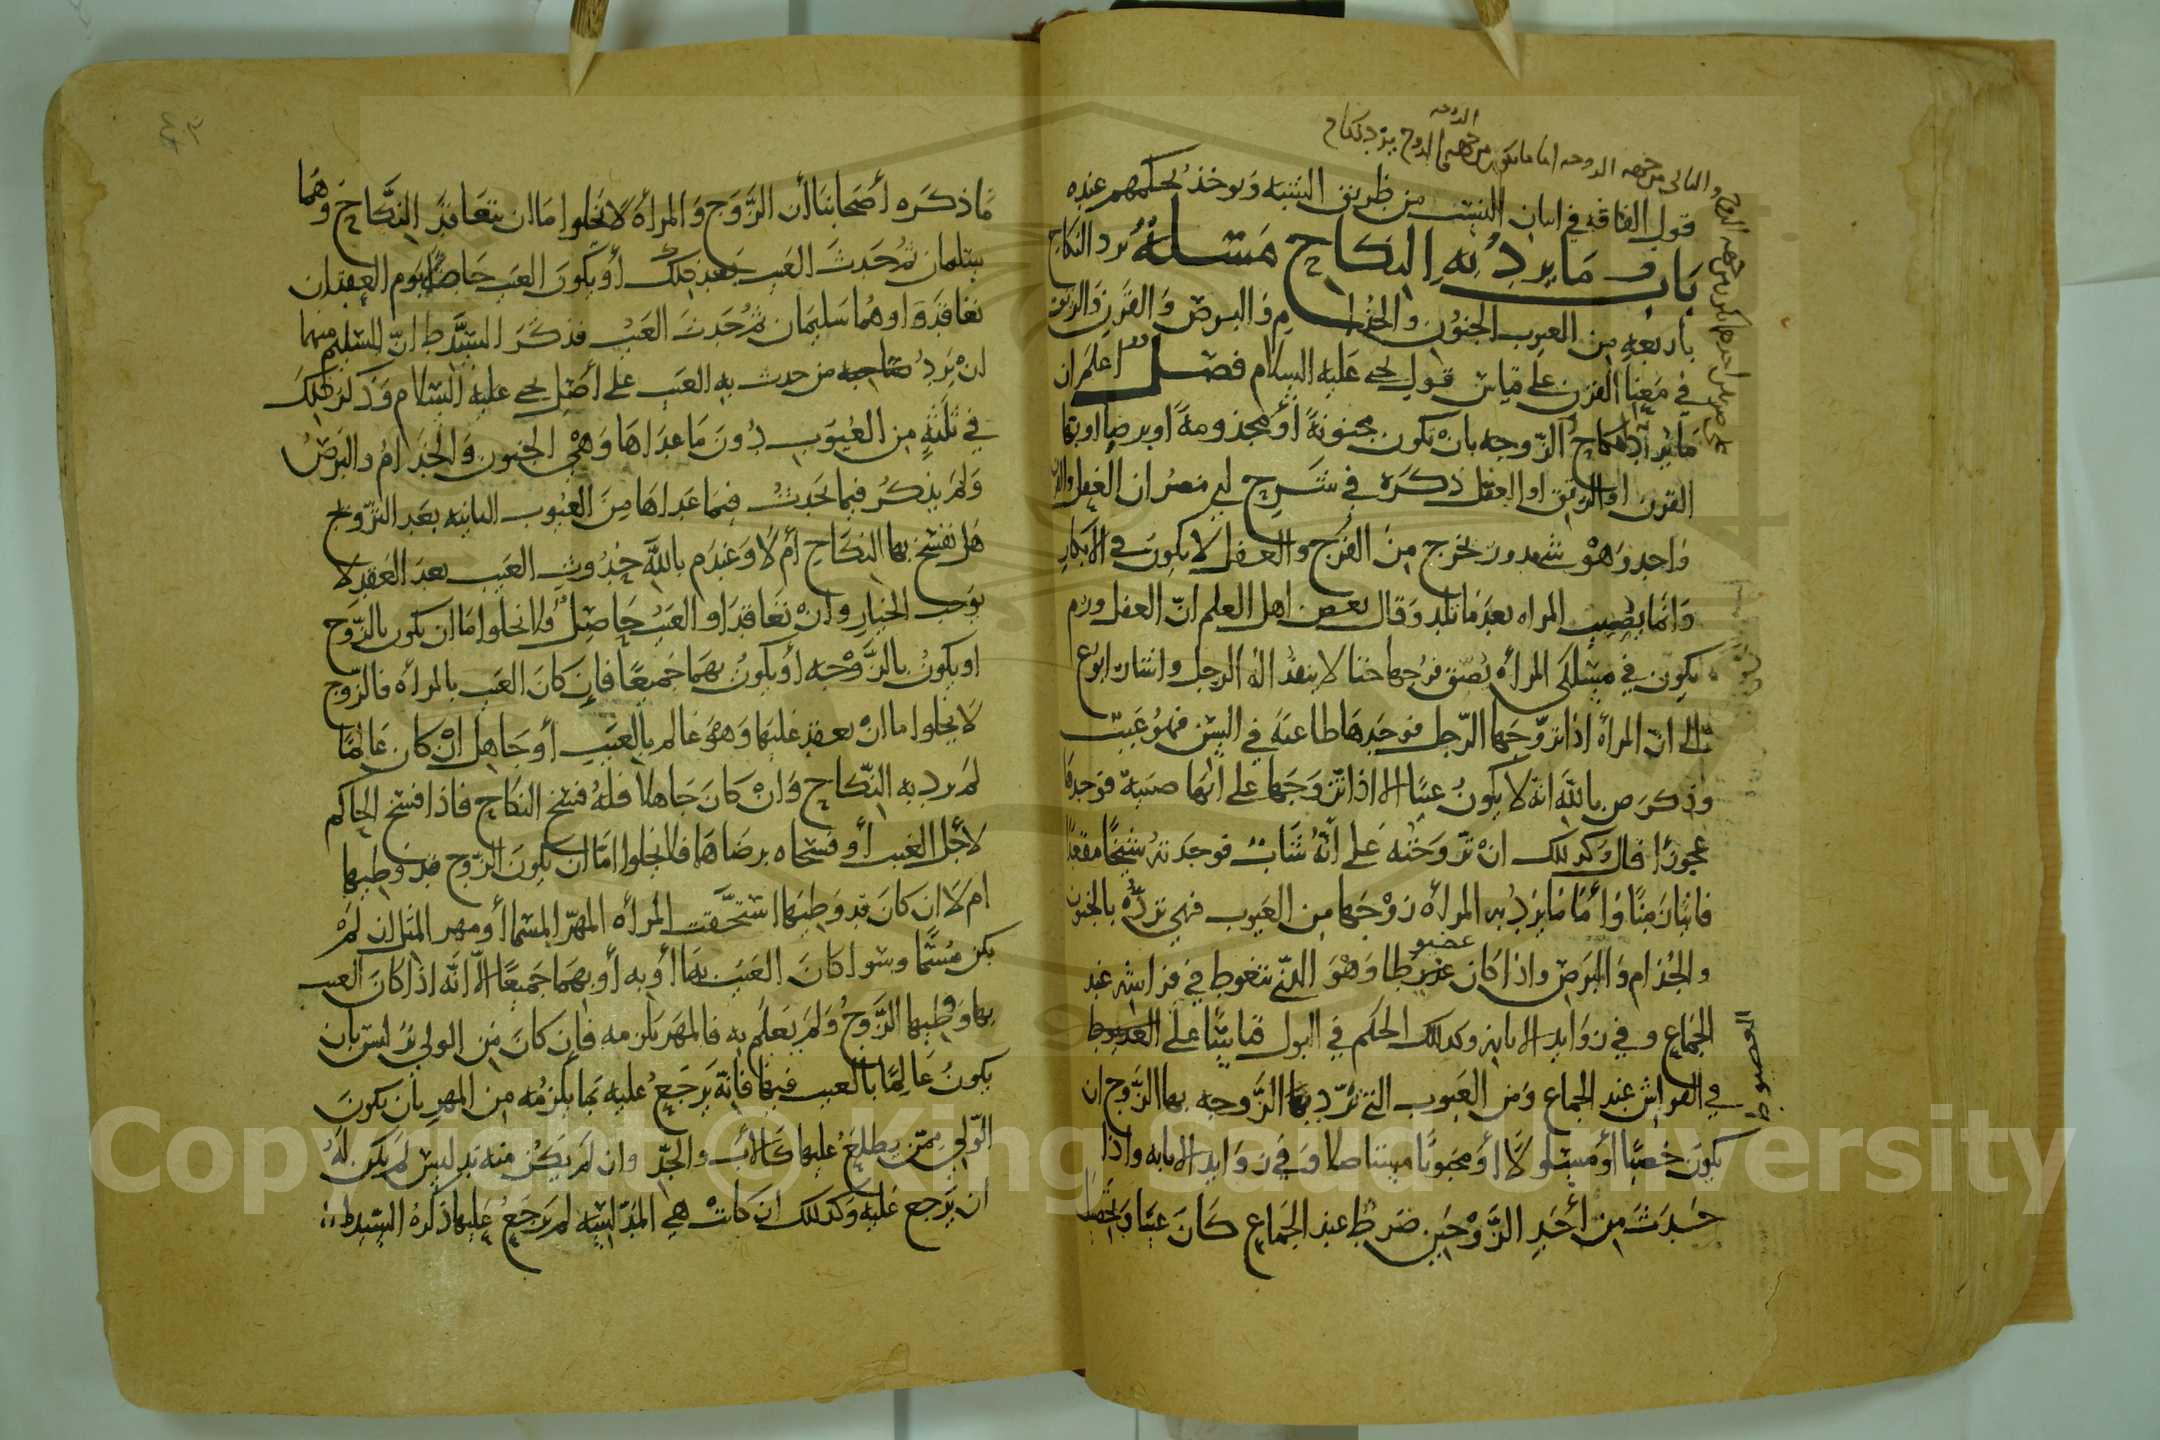 قول القافه في اثبات النسب من طريق الشبه ويوخذ بحكمهم عنده
باب ما يرد به النكاح مسلة يرد النكاح
باربعه من العيوب الجنون والجذام والبرص والقرن والرتق
في معنا القرن على قياس قول يحي عليه السلام فصل اعلم ان
ما يرد به نكاح الزوجه بان تكون مجنونة أو مجذومة او برصا او بها
القرن او الرتق او العفل ذكره في شرح ابي مضر ان العفل والقرن
واحد وهو شي مدور يخرج من الفرج والعفل لا يكون في الابكار
وانما يصيب المراه بعد ما تلد وقال بعض اهل العلم ان العفل ورم
يكون في مسلكي المرأه يضيق فرجها حتا لا ينفذ اله الرجل واشار ابو ع
الى ان المرأه اذا تزوجها الرجل فوجدها طاعنه في السن فهو عيب
وذكر ص بالله انه لا يكون عيبا الا اذا تزوجها على انها صبية فوجدها
عجوزا قال وكذلك ان تزوجته على أنه شاب فوجدته شيخا مقعدا
فانيا وأما ما يرد به المرأه زوجها من العيوب فهي ترده بالجنون
والجذام والبرص واذا كان عذيوطا وهو الذي يتغوط في فراشه عند
عضيو
الجماع وفي زوايد الابانه وكذلك الحكم في البول قياسا على العذيوط
العضيوط
في الفراش عند الجماع ومن العيوب التي ترد بها الزوجه بها الزوج ان
يكون خصيا أو مسلولا أو مجبوبا مستاصلا وفي زوايد الابانه واذا
حدث من أحد الزوجين ضرط عند الجماع كان عيبا وتحصيل
ما ذكره أصحابنا أن الزوج والمرأه لا يخلوا اما ان يتعاقد النكاح وهما
سليمان ثم يحدث العيب بعد ذلك أو يكون العيب حاصلا يوم العقد ان
تعاقدوا وهما سليمان ثم يحدث العيب فذكر السيد ط ان للسليم منهما
ان يرد صاحبه من حدث به العيب على أصل يحي عليه السلام وذكر ذلك
في ثلثة من العيوب دون ما عداها وهي الجنون والجذام والبرص
ولم يذكر فيما يحدث فيما عداها من العيوب الباقيه بعد التزويج
هل يفسخ بها النكاح أم لا وعند م بالله حدوث العيب بعد العقد لا
يوجب الخيار وان تعاقدا والعيب حاصل فلا يخلوا اما ان يكون بالزوج
او يكون بالزوجه أو يكون بهما جميعا فإن كان العيب بالمرأه فالزوج
لا يخلوا اما ان يعقد عليها وهو عالم بالعيب أو جاهل ان كان عالما
لم يرد به النكاح وان كان جاهلا فله فسخ النكاح فاذا فسخ الحاكم
لأجل العيب أو فسخاه برضاهما فلا يخلوا اما ان يكون الزوج قد وطيها
ام لا ان كان قد وطيها استحقت المرأه المهر المسما أو مهر المثل ان لم
يكن مسما وسوا كان العيب بها أو به أو بهما جميعا الا انه اذا كان العيب
بها ووطيها الزوج ولم يعلم به فالمهر يلزمه فإن كان من الولي تدليس بان
يكون عالما بالعيب فيها فانه يرجع عليه بما يلزمه من المهر بان يكون
الولي ممن يطلع عليها كالأب والجد وان لم يكن منه تدليس لم يكن له
ان يرجع عليه وكذلك ان كانت هي المدلسه لم يرجع عليها ذكره السيد ط
Copyright © King Saud University